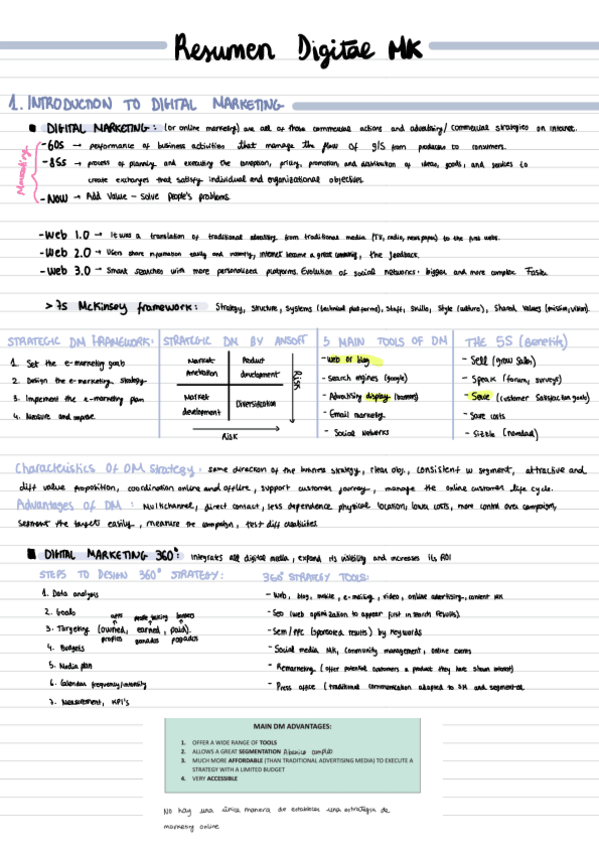 Resumen Digital MK
1. INTRODUCTION TO DIGITAL MARKETING
DIGITAL MARKETING: (or online marketing) are all of those commercial actions and advertising/ commercial strategies on internet.
Marketing
- 60s → performance of business activities that manage the flow of g/s from producer to consumers.
- 85s → process of planning and executing the conception, pricing, promotion, and distribution of ideas, goods, and services to
create exchanges that satisfy individual and organizational objectives.
- NOW → Add Value - Solve people's problems.
- Web 1.0 → It was a translation of traditional advertising from traditional media (TV, radio, newspaper) to the first webs.
- Web 2.0 → Users share information easily and normally, internet became a great community, the feedback.
- Web 3.0 → Smart searches with more personalized platforms. Evolution of social networks: bigger and more complex. Faster.
> 7s McKinsey framework: Strategy, structure, systems (technical platforms), staff, skills, style (culture), shared values (mission, vision).
STRATEGIC DM FRAMEWORK:
1. Set the e-marketing goals
2. Design the e-marketing strategy
3. Implement the e-marketing plan
4. Measure and improve
STRATEGIC DM BY ANSOFF
Market penetration
Product development
Market development
Diversification
RISK
Risk
5 MAIN TOOLS OF DM
- Web or blog
- Search engines (google)
- Advertising display (banners)
- Email marketing
- Social networks
THE 5S (Benefits)
- Sell (grow sales)
- Speak (forums, surveys)
- Serve (customer satisfaction goals)
- Save costs
- Sizzle
Characteristics Of DM Strategy: same direction of the business strategy, clear obj., consistent w segment, attractive and
diff value proposition, coordination online and offline, support customer journey, manage the online customer life cycle.
Advantages of DM: Multichannel, direct contact, less dependence physical location, lower costs, more control over campaign,
segment the targets easily, measure the campaign, test diff creatividades
DIGITAL MARKETING 360°: integrates all digital media, expand its visibility and increases its ROI
STEPS TO DESIGN 360° STRATEGY:
1. Data analysis
2. Goals
3. Targeting (owned, earned, paid).
propios ganados pagados
4. Budgets
5. Media plan
6. Calendar frequency/intensity
7. Measurement, KPI's
360° STRATEGY TOOLS:
- Web, blog, mobile, e-mailing, video, online advertising, content MK
- Seo (web optimization to appear first in search results).
- Sem/PPC (sponsored results) by keywords
- Social media MK, community management, online events
- Remarketing (offer potential customers a product they have shown interest)
- Press office (traditional communication adapted to DM and segmented
MAIN DM ADVANTAGES:
1. OFFER A WIDE RANGE OF TOOLS
2. ALLOWS A GREAT SEGMENTATION Abanico amplio
3. MUCH MORE AFFORDABLE (THAN TRADITIONAL ADVERTISING MEDIA) TO EXECUTE A
STRATEGY WITH A LIMITED BUDGET
4. VERY ACCESSIBLE
No hay una única manera de establecer una estrategia de
marketing online